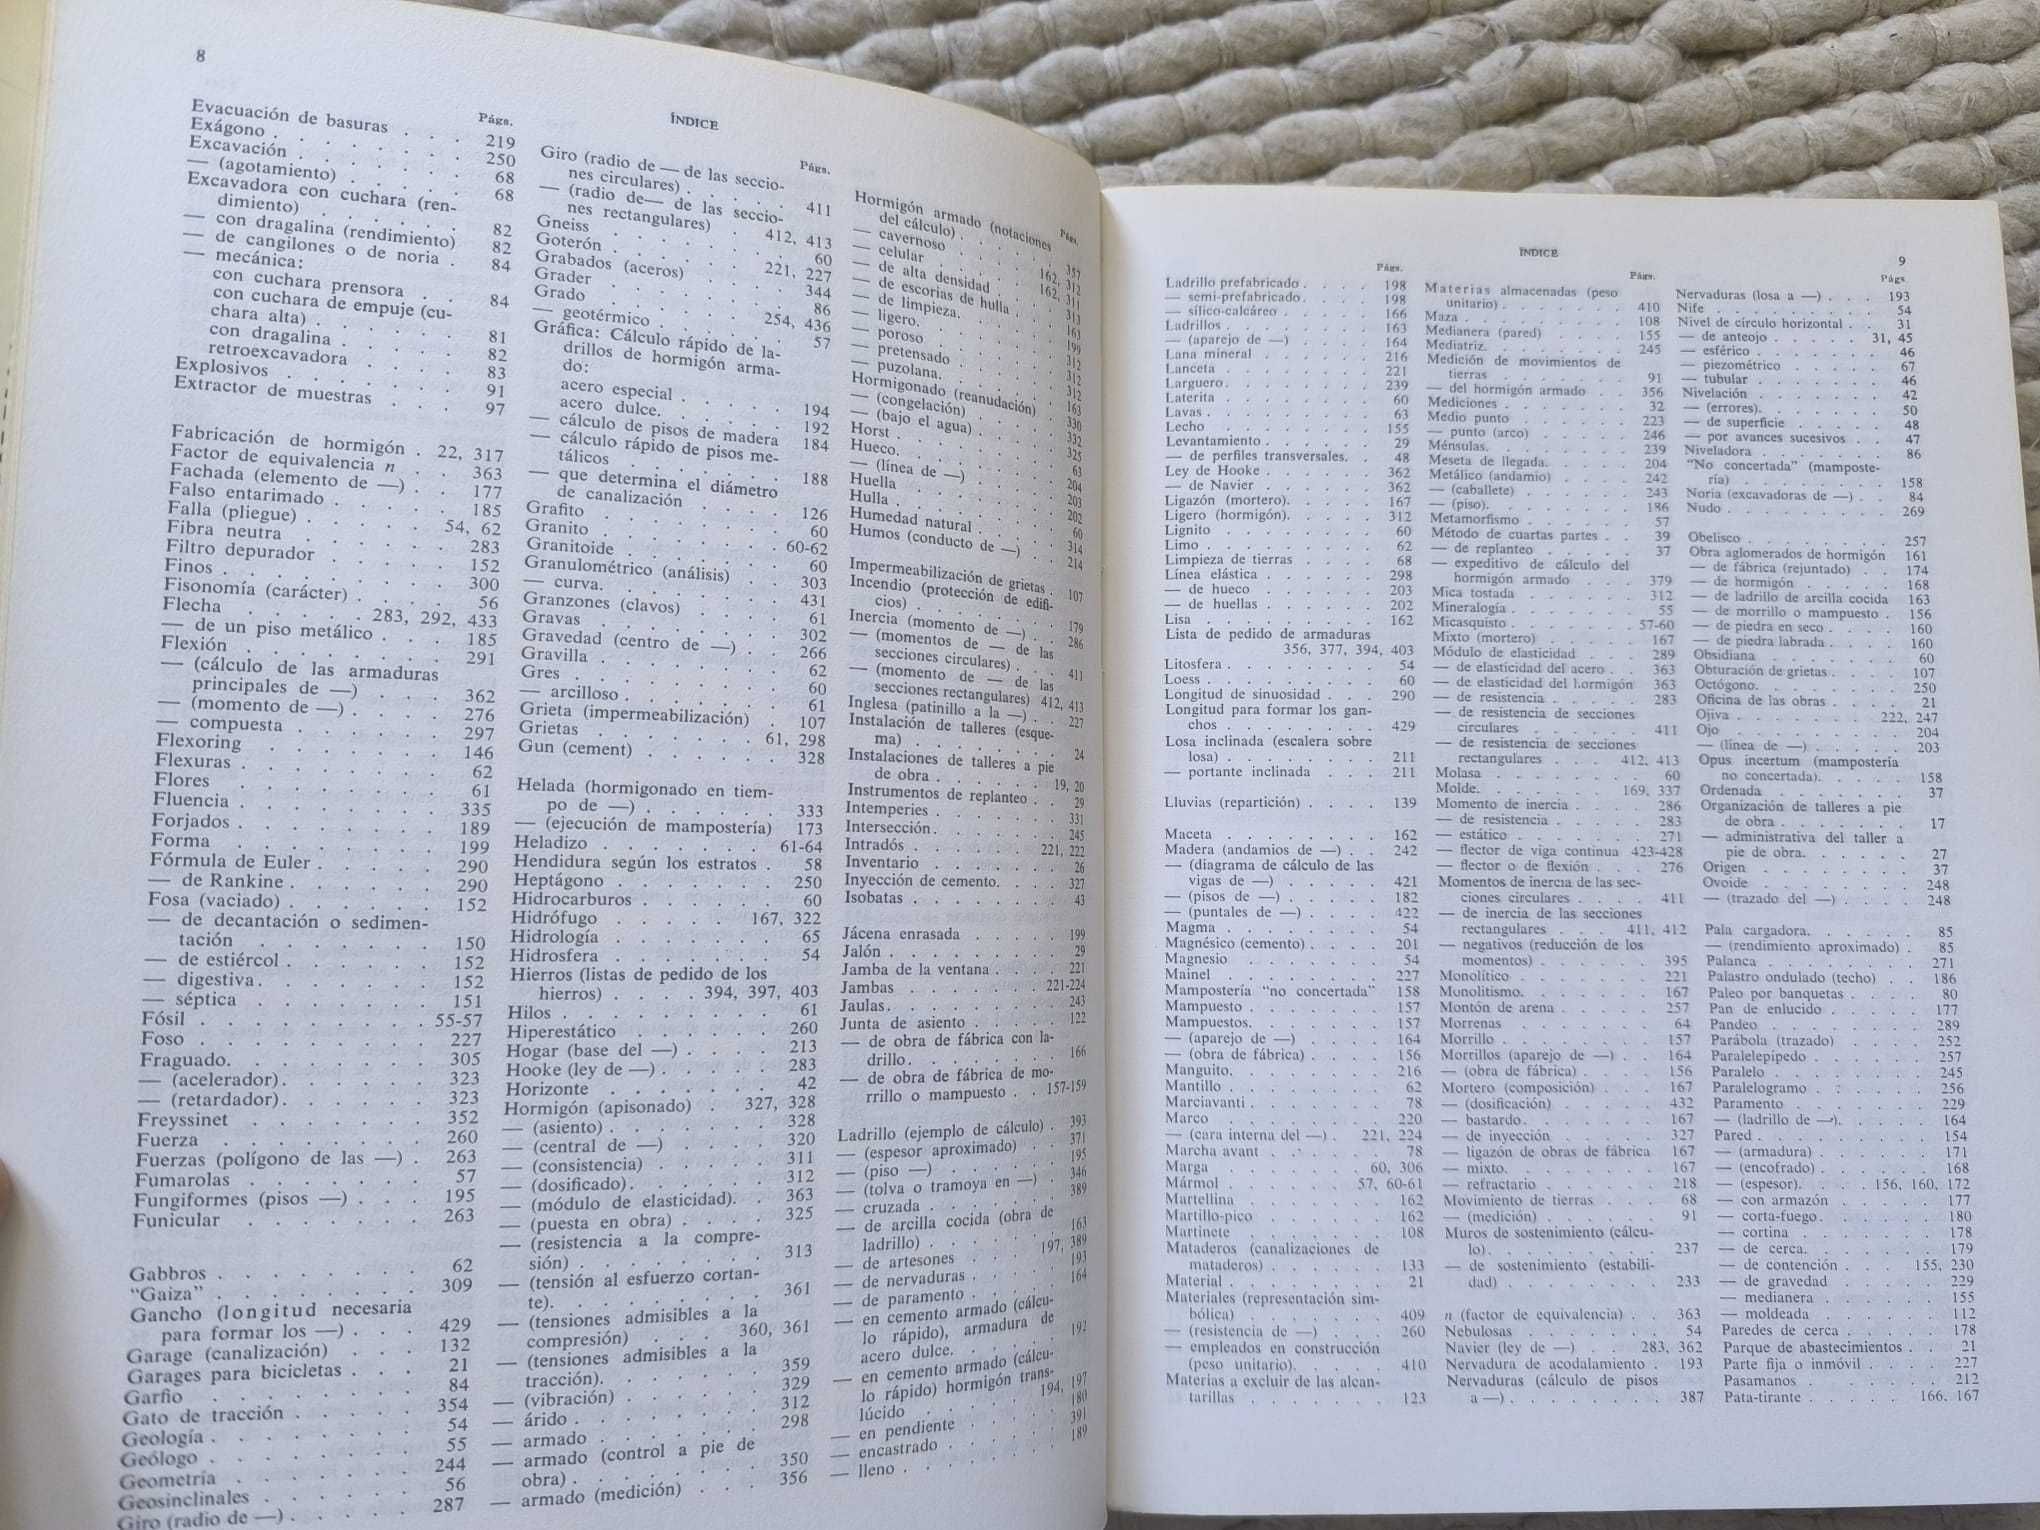 8
ÍNDICE
Págs.
Evacuación de basuras . . . 219
Exágono . . . . . . . 250
Excavación . . . . . . 68
— (agotamiento) . . . . . 68
Excavadora con cuchara (ren-
dimiento) . . . . . . 82
— con dragalina (rendimiento) 82
— de cangilones o de noria . 84
— mecánica:
con cuchara prensora . . 84
con cuchara de empuje (cu-
chara alta) . . . . . 81
con dragalina . . . . . 82
retroexcavadora . . . . 83
Explosivos . . . . . . 91
Extractor de muestras . . . 97
Fabricación de hormigón . 22, 317
Factor de equivalencia n . . 363
Fachada (elemento de —) . . 177
Falso entarimado . . . . 185
Falla (pliegue) . . . . 54, 62
Fibra neutra . . . . . . 283
Filtro depurador . . . . 152
Finos . . . . . . . . 300
Fisonomía (carácter) . . . 56
Flecha . . . . 283, 292, 433
— de un piso metálico . . . 185
Flexión . . . . . . . 291
— (cálculo de las armaduras
principales de —) . . . 362
— (momento de —) . . . . 276
— compuesta . . . . . . 297
Flexoring . . . . . . . 146
Flexuras . . . . . . . 62
Flores . . . . . . . . 61
Fluencia . . . . . . . 335
Forjados . . . . . . . 189
Forma . . . . . . . . 199
Fórmula de Euler . . . . 290
— de Rankine . . . . . . 290
Fosa (vaciado) . . . . . 152
— de decantación o sedimen-
tación . . . . . . . 150
— de estiércol . . . . . 152
— digestiva. . . . . . . 152
— séptica . . . . . . . 151
Fósil . . . . . . . 55-57
Foso . . . . . . . . 227
Fraguado. . . . . . . 305
— (acelerador). . . . . . 323
— (retardador). . . . . . 323
Freyssinet . . . . . . . 352
Fuerza . . . . . . . . 260
Fuerzas (polígono de las —) . 263
Fumarolas . . . . . . . 57
Fungiformes (pisos —) . . . 195
Funicular . . . . . . . 263
Gabbros . . . . . . . . 62
“Gaiza” . . . . . . . . 309
Gancho (longitud necesaria
para formar los —) . . . 429
Garage (canalización) . . . 132
Garages para bicicletas . . . 21
Garfio . . . . . . . . 84
Gato de tracción . . . . . 354
Geología . . . . . . . 54
Geólogo . . . . . . . . 55
Geometría . . . . . . . 244
Geosinclinales . . . . . . 56
Giro (radio de —) . . . . . 287
Págs.
Giro (radio de — de las seccio-
nes circulares) . . . . . 411
— (radio de— de las seccio-
nes rectangulares) . 412, 413
Gneiss . . . . . . . . 60
Goterón . . . . . 221, 227
Grabados (aceros) . . . . 344
Grader . . . . . . . . 86
Grado . . . . . . 254, 436
— geotérmico . . . . . . 57
Gráfica: Cálculo rápido de la-
drillos de hormigón arma-
do:
acero especial . . . . . 194
acero dulce. . . . . . 192
— cálculo de pisos de madera 184
— cálculo rápido de pisos me-
tálicos . . . . . . . 188
— que determina el diámetro
de canalización . . . . 126
Grafito . . . . . . . . 60
Granito . . . . . . . 60-62
Granitoide . . . . . . . 60
Granulométrico (análisis) . . 303
— curva. . . . . . . . 431
Granzones (clavos) . . . . 61
Gravas . . . . . . . . 302
Gravedad (centro de —) . . . 266
Gravilla . . . . . . . . 62
Gres . . . . . . . . . 60
— arcilloso . . . . . . . 61
Grieta (impermeabilización) . 107
Grietas . . . . . . 61, 298
Gun (cement) . . . . . . 328
Helada (hormigonado en tiem-
po de —) . . . . . . 333
— (ejecución de mampostería) 173
Heladizo . . . . . . . 61-64
Hendidura según los estratos . 58
Heptágono . . . . . . . 250
Hidrocarburos . . . . . . 60
Hidrófugo . . . . . 167, 322
Hidrología . . . . . . . 65
Hidrosfera . . . . . . . 54
Hierros (listas de pedido de los
hierros) . . . . 394, 397, 403
Hilos . . . . . . . . . 61
Hiperestático . . . . . . 260
Hogar (base del —) . . . . 213
Hooke (ley de —) . . . . . 283
Horizonte . . . . . . . 42
Hormigón (apisonado) . 327, 328
— (asiento) . . . . . . . 328
— (central de —) . . . . . 320
— (consistencia) . . . . . 311
— (dosificado). . . . . . 312
— (módulo de elasticidad). . 363
— (puesta en obra) . . . . 325
— (resistencia a la compre-
sión) . . . . . . . 313
— (tensión al esfuerzo cortan-
te). . . . . . . . . 361
— (tensiones admisibles a la
compresión) . . . 360, 361
— (tensiones admisibles a la
tracción). . . . . . . 359
— (vibración) . . . . . . 329
— árido . . . . . . . . 312
— armado . . . . . . . 298
— armado (control a pie de
obra) . . . . . . . . 350
— armado (medición) . . . 356
Págs.
Hormigón armado (notaciones
del cálculo) . . . . . . 357
— cavernoso . . . . 162, 312
— celular . . . . . 162, 311
— de alta densidad . . . . 313
— de escorias de hulla . . . 163
— de limpieza. . . . . . 199
— ligero. . . . . . . . 312
— poroso . . . . . . . 312
— pretensado . . . . . . 312
— puzolana. . . . . . . 163
Hormigonado (reanudación) . 330
— (congelación) . . . . . 332
— (bajo el agua) . . . . . 325
Horst . . . . . . . . . 63
Hueco. . . . . . . . . 204
— (línea de —) . . . . . . 203
Huella . . . . . . . . 202
Hulla . . . . . . . . . 60
Humedad natural . . . . . 314
Humos (conducto de —) . . 214
Impermeabilización de grietas . 107
Incendio (protección de edifi-
cios) . . . . . . . . 179
Inercia (momento de —) . . 286
— (momentos de — de las
secciones circulares) . . . 411
— (momento de — de las
secciones rectangulares) 412, 413
Inglesa (patinillo a la —) . . 227
Instalación de talleres (esque-
ma) . . . . . . . . 24
Instalaciones de talleres a pie
de obra . . . . . . 19, 20
Instrumentos de replanteo . . 29
Intemperies . . . . . . . 331
Intersección. . . . . . . 245
Intradós . . . . . . 221, 222
Inventario . . . . . . . 26
Inyección de cemento. . . . 327
Isobatas . . . . . . . . 43
Jácena enrasada . . . . . 199
Jalón . . . . . . . . . 29
Jamba de la ventana . . . . 221
Jambas . . . . . . . 221-224
Jaulas. . . . . . . . . 243
Junta de asiento . . . . . 122
— de obra de fábrica con la-
drillo. . . . . . . . 166
— de obra de fábrica de mo-
rrillo o mampuesto . . 157-159
Ladrillo (ejemplo de cálculo) . 393
— (espesor aproximado) . . 371
— (piso —) . . . . . . . 195
— (tolva o tramoya en —) . 346
— cruzada . . . . . . . 389
— de arcilla cocida (obra de
ladrillo) . . . . . . . 163
— de artesones . . . . 197, 389
— de nervaduras . . . . . 193
— de paramento . . . . . 164
— en cemento armado (cálcu-
lo rápido), armadura de
acero dulce. . . . . . 192
— en cemento armado (cálcu-
lo rápido) hormigón trans-
lúcido . . . . . . 194, 197
— en pendiente . . . . . 180
— encastrado . . . . . . 391
— lleno . . . . . . . . 189
ÍNDICE
9
Págs.
Ladrillo prefabricado . . . . 198
— semi-prefabricado. . . . 198
— sílico-calcáreo . . . . . 166
Ladrillos . . . . . . . . 163
— (aparejo de —) . . . . . 164
Lana mineral . . . . . . 216
Lanceta . . . . . . . . 221
Larguero. . . . . . . . 239
Laterita . . . . . . . . 60
Lavas . . . . . . . . . 63
Lecho . . . . . . . . . 155
Levantamiento . . . . . . 29
— de perfiles transversales. . 48
Ley de Hooke . . . . . . 362
— de Navier . . . . . . . 362
Ligazón (mortero). . . . . 167
Ligero (hormigón). . . . . 312
Lignito . . . . . . . . 60
Limo . . . . . . . . . 62
Limpieza de tierras . . . . 68
Línea elástica . . . . . . 298
— de hueco . . . . . . . 203
— de huellas . . . . . . . 202
Lisa . . . . . . . . . 162
Lista de pedido de armaduras
356, 377, 394, 403
Litosfera . . . . . . . . 54
Loess . . . . . . . . . 60
Longitud de sinuosidad . . . 290
Longitud para formar los gan-
chos . . . . . . . . 429
Losa inclinada (escalera sobre
losa) . . . . . . . . 211
— portante inclinada . . . 211
Lluvias (repartición) . . . . 139
Maceta . . . . . . . . 162
Madera (andamios de —) . . 242
— (diagrama de cálculo de las
vigas de —) . . . . . 421
— (pisos de —) . . . . . . 182
— (puntales de —) . . . . 422
Magma . . . . . . . . 54
Magnésico (cemento) . . . . 201
Magnesio . . . . . . . . 54
Mainel . . . . . . . . 227
Mampostería “no concertada” 158
Mampuesto . . . . . . . 157
Mampuestos. . . . . . . 157
— (aparejo de —) . . . . . 164
— (obra de fábrica) . . . . 156
Manguito. . . . . . . . 216
Mantillo . . . . . . . . 62
Marciavanti . . . . . . . 78
Marco . . . . . . . . 220
— (cara interna del —) . 221, 224
Marcha avant . . . . . . 78
Marga . . . . . . . 60, 306
Mármol . . . . . . 57, 60-61
Martellina . . . . . . . 162
Martillo-pico . . . . . . 162
Martinete . . . . . . . 108
Mataderos (canalizaciones de
mataderos) . . . . . . 133
Material . . . . . . . . 21
Materiales (representación sim-
bólica) . . . . . . . 409
— (resistencia de —) . . . . 260
— empleados en construcción
(peso unitario). . . . . 410
Materias a excluir de las alcan-
tarillas . . . . . . . 123
Págs.
Materias almacenadas (peso
unitario) . . . . . . . 410
Maza . . . . . . . . . 108
Medianera (pared) . . . . 155
Mediatriz. . . . . . . . 245
Medición de movimientos de
tierras . . . . . . . 91
— del hormigón armado . . 356
Mediciones . . . . . . . 32
Medio punto . . . . . . 223
— punto (arco) . . . . . . 246
Ménsulas. . . . . . . . 239
Meseta de llegada. . . . . 204
Metálico (andamio) . . . . 242
— (caballete) . . . . . . 243
— (piso). . . . . . . . 186
Metamorfismo . . . . . . 57
Método de cuartas partes . . 39
— de replanteo . . . . . . 37
— expeditivo de cálculo del
hormigón armado . . . 379
Mica tostada . . . . . . 312
Mineralogía . . . . . . . 55
Micasquisto . . . . . . 57-60
Mixto (mortero) . . . . . 167
Módulo de elasticidad . . . 289
— de elasticidad del acero . . 363
— de elasticidad del hormigón 363
— de resistencia . . . . . 283
— de resistencia de secciones
circulares . . . . . . 411
— de resistencia de secciones
rectangulares . . . 412, 413
Molasa . . . . . . . . 60
Molde. . . . . . . 169, 337
Momento de inercia . . . . 286
— de resistencia . . . . . 283
— estático . . . . . . . 271
— flector de viga continua 423-428
— flector o de flexión . . . 276
Momentos de inercia de las sec-
ciones circulares . . . . 411
— de inercia de las secciones
rectangulares . . . 411, 412
— negativos (reducción de los
momentos) . . . . . . 395
Monolítico . . . . . . . 221
Monolitismo. . . . . . . 167
Montón de arena . . . . . 257
Morrenas . . . . . . . 64
Morrillo . . . . . . . . 157
Morrillos (aparejo de —) . . 164
— (obra de fábrica) . . . . 156
Mortero (composición) . . . 167
— (dosificación) . . . . . 432
— bastardo. . . . . . . 167
— de inyección . . . . . 327
— ligazón de obras de fábrica 167
— mixto. . . . . . . . 167
— refractario . . . . . . 218
Movimiento de tierras . . . 68
— (medición) . . . . . . 91
Muros de sostenimiento (cálcu-
lo). . . . . . . . . 237
— de sostenimiento (estabili-
dad) . . . . . . . . 233
n (factor de equivalencia) . . 363
Nebulosas . . . . . . . 54
Navier (ley de —) . . . 283, 362
Nervadura de acodalamiento . 193
Nervaduras (cálculo de pisos
a —) . . . . . . . . 387
Págs.
Nervaduras (losa a —) . . . 193
Nife . . . . . . . . . 54
Nivel de círculo horizontal . . 31
— de anteojo . . . . . 31, 45
— esférico . . . . . . . 46
— piezométrico . . . . . 67
— tubular . . . . . . . 46
Nivelación . . . . . . . 42
— (errores). . . . . . . 50
— de superficie . . . . . 48
— por avances sucesivos . . 47
Niveladora . . . . . . . 86
“No concertada” (mamposte-
ría) . . . . . . . . 158
Noria (excavadoras de —) . . 84
Nudo . . . . . . . . . 269
Obelisco . . . . . . . . 257
Obra aglomerados de hormigón 161
— de fábrica (rejuntado) . . 174
— de hormigón . . . . . 168
— de ladrillo de arcilla cocida 163
— de morrillo o mampuesto . 156
— de piedra en seco . . . . 160
— de piedra labrada . . . . 160
Obsidiana . . . . . . . 60
Obturación de grietas . . . 107
Octógono. . . . . . . . 250
Oficina de las obras . . . . 21
Ojiva . . . . . . . 222, 247
Ojo . . . . . . . . . 204
— (línea de —) . . . . . . 203
Opus incertum (mampostería
no concertada). . . . . 158
Ordenada . . . . . . . 37
Organización de talleres a pie
de obra . . . . . . . 17
— administrativa del taller a
pie de obra. . . . . . 27
Origen . . . . . . . . 37
Ovoide . . . . . . . . 248
— (trazado del —) . . . . 248
Pala cargadora. . . . . . 85
— (rendimiento aproximado) . 85
Palanca . . . . . . . . 271
Palastro ondulado (techo) . . 186
Paleo por banquetas . . . . 80
Pan de enlucido . . . . . 177
Pandeo . . . . . . . . 289
Parábola (trazado) . . . . 252
Paralelepípedo . . . . . . 257
Paralelo . . . . . . . . 245
Paralelogramo . . . . . . 256
Paramento . . . . . . . 229
— (ladrillo de —). . . . . 164
Pared . . . . . . . . . 154
— (armadura) . . . . . . 171
— (encofrado) . . . . . . 168
— (espesor). . . . 156, 160, 172
— con armazón . . . . . 177
— corta-fuego. . . . . . 180
— cortina . . . . . . . 178
— de cerca. . . . . . . 179
— de contención . . . 155, 230
— de gravedad . . . . . 229
— medianera . . . . . . 155
— moldeada . . . . . . 112
Paredes de cerca . . . . . 178
Parque de abastecimientos . . 21
Parte fija o inmóvil . . . . 227
Pasamanos . . . . . . . 212
Pata-tirante . . . . . 166, 167